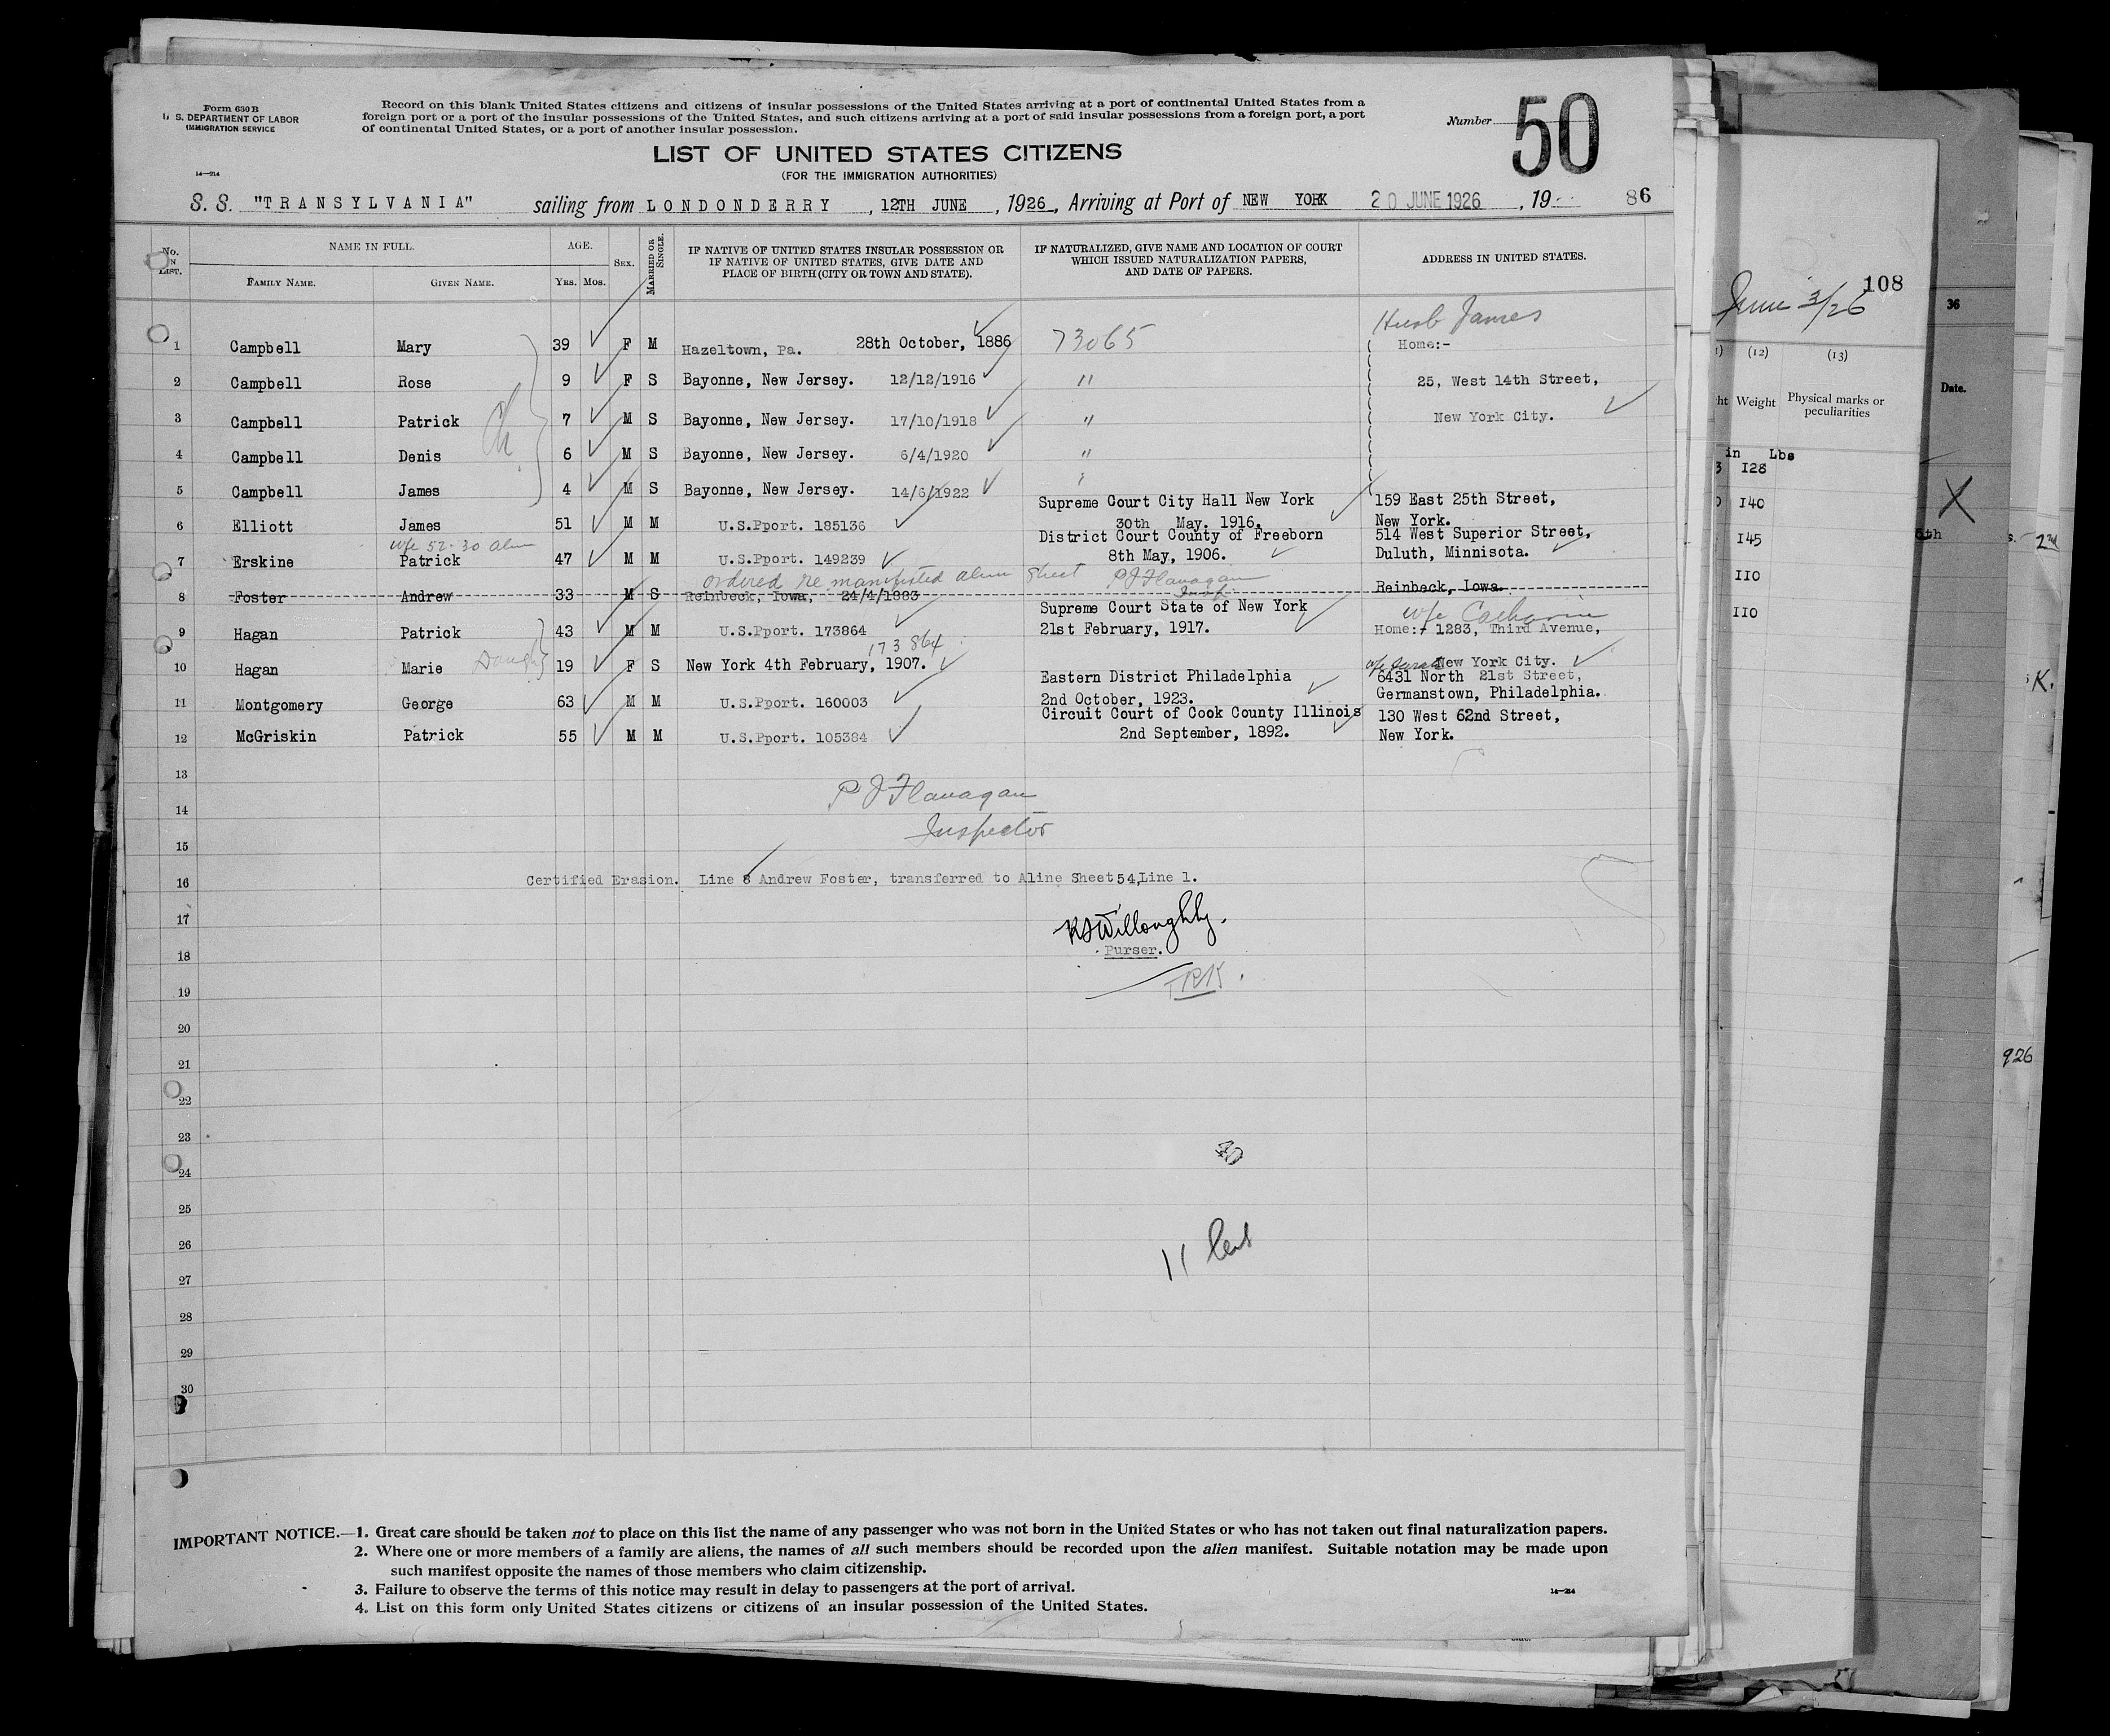 Form 630 B
U. S. DEPARTMENT OF LABOR
IMMIGRATION SERVICE
14—214
Record on this blank United States citizens and citizens of insular possessions of the United States arriving at a port of continental United States from a
foreign port or a port of the insular possessions of the United States, and such citizens arriving at a port of said insular possessions from a foreign port, a port
of continental United States, or a port of another insular possession.
Number 50
LIST OF UNITED STATES CITIZENS
(FOR THE IMMIGRATION AUTHORITIES)
S. S. "TRANSYLVANIA" sailing from LONDONDERRY, 12TH JUNE, 1926, Arriving at Port of NEW YORK 20 JUNE 1926, 19 86
No. IN LIST. NAME IN FULL. AGE. SEX. MARRIED OR SINGLE. IF NATIVE OF UNITED STATES INSULAR POSSESSION OR IF NATIVE OF UNITED STATES, GIVE DATE AND PLACE OF BIRTH (CITY OR TOWN AND STATE). IF NATURALIZED, GIVE NAME AND LOCATION OF COURT WHICH ISSUED NATURALIZATION PAPERS, AND DATE OF PAPERS. ADDRESS IN UNITED STATES.
FAMILY NAME. GIVEN NAME. YRS. MOS.
Husb James
1 Campbell Mary 39 F M Hazeltown, Pa. 28th October, 1886 73065 Home:-
2 Campbell Rose 9 F S Bayonne, New Jersey. 12/12/1916 " 25, West 14th Street,
3 Campbell Patrick 7 M S Bayonne, New Jersey. 17/10/1918 " New York City.
Ch
4 Campbell Denis 6 M S Bayonne, New Jersey. 6/4/1920 "
5 Campbell James 4 M S Bayonne, New Jersey. 14/6/1922 "
Supreme Court City Hall New York 159 East 25th Street,
6 Elliott James 51 M M U.S.Pport. 185136 30th May. 1916. New York.
wife 52-30 Alien District Court County of Freeborn 514 West Superior Street,
7 Erskine Patrick 47 M M U.S.Pport. 149239 8th May, 1906. Duluth, Minnisota.
ordered re manifested alien sheet P J Flanagan
Insp
8 Foster Andrew 33 M S Reinbeck, Iowa, 24/4/1883 Reinbeck, Iowa.
Supreme Court State of New York wife Catherine
9 Hagan Patrick 43 M M U.S.Pport. 173864 21st February, 1917. Home:- 1283, Third Avenue,
173864
10 Hagan Marie Daugh 19 F S New York 4th February, 1907. New York City.
Eastern District Philadelphia 6431 North 21st Street,
11 Montgomery George 63 M M U.S.Pport. 160003 2nd October, 1923. Germanstown, Philadelphia.
Circuit Court of Cook County Illinois 130 West 62nd Street,
12 McGriskin Patrick 55 M M U.S.Pport. 105384 2nd September, 1892. New York.
13
P J Flanagan
14
Inspector
15
16 Certified Erasion. Line 8 Andrew Foster, transferred to Aline Sheet 54, Line 1.
17
RS Willoughby.
18 Purser.
19
20
21
22
23
40
24
25
26
11
27
28
29
30
IMPORTANT NOTICE.—1. Great care should be taken not to place on this list the name of any passenger who was not born in the United States or who has not taken out final naturalization papers.
2. Where one or more members of a family are aliens, the names of all such members should be recorded upon the alien manifest. Suitable notation may be made upon
such manifest opposite the names of those members who claim citizenship.
3. Failure to observe the terms of this notice may result in delay to passengers at the port of arrival.
4. List on this form only United States citizens or citizens of an insular possession of the United States.
14—214
108
June 3/26
(12) (13)
Weight Physical marks or peculiarities
in Lbs
128
140
145
110
110
36
Date.
X
2nd
K.
926